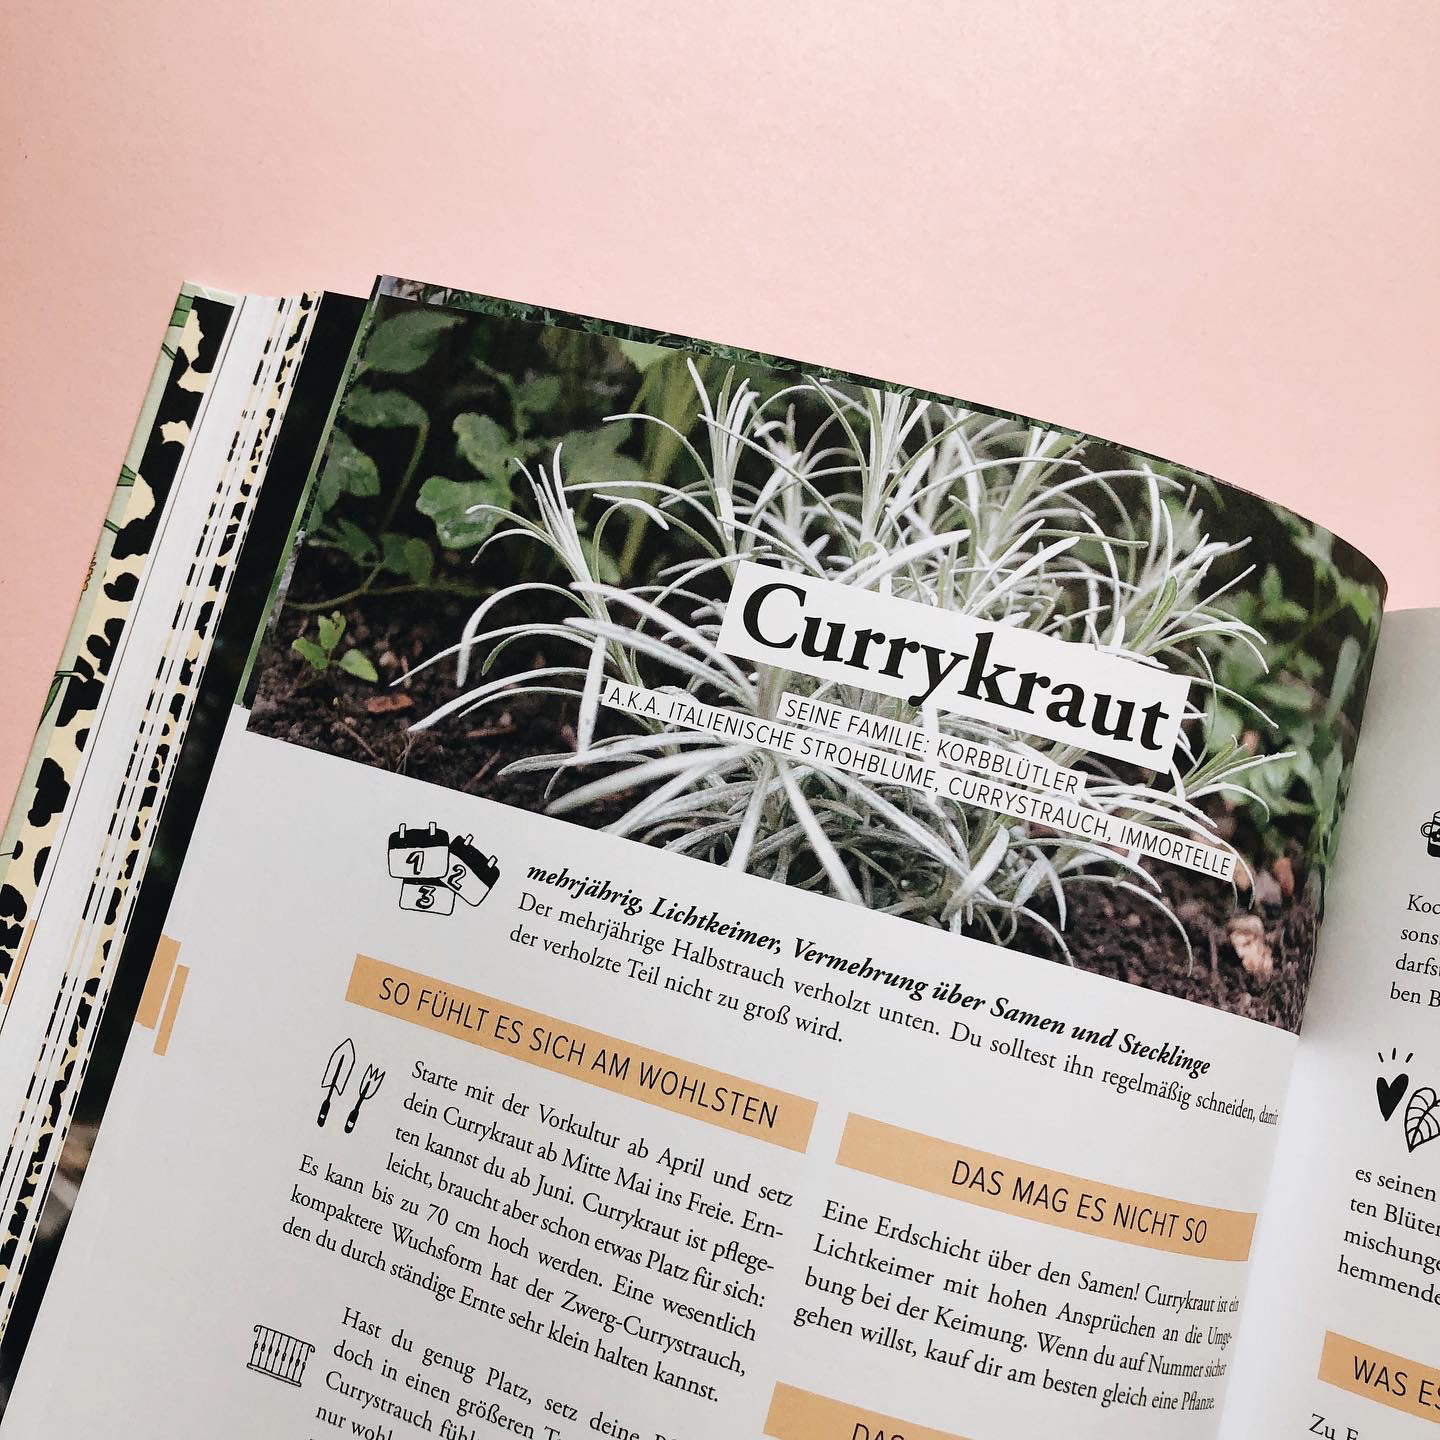 Currykraut
SEINE FAMILIE: KORBBLÜTLER
A.K.A. ITALIENISCHE STROHBLUME, CURRYSTRAUCH, IMMORTELLE
1 2
3
mehrjährig, Lichtkeimer, Vermehrung über Samen und Stecklinge
Der mehrjährige Halbstrauch verholzt unten. Du solltest ihn regelmäßig schneiden, damit
der verholzte Teil nicht zu groß wird.
SO FÜHLT ES SICH AM WOHLSTEN
Starte mit der Vorkultur ab April und setz
dein Currykraut ab Mitte Mai ins Freie. Ern-
ten kannst du ab Juni. Currykraut ist pflege-
leicht, braucht aber schon etwas Platz für sich:
Es kann bis zu 70 cm hoch werden. Eine wesentlich
kompaktere Wuchsform hat der Zwerg-Currystrauch,
den du durch ständige Ernte sehr klein halten kannst.
Hast du genug Platz, setz deine
doch in einen größeren
Currystrauch
nur
DAS MAG ES NICHT SO
Eine Erdschicht über den Samen! Currykraut ist ein
Lichtkeimer mit hohen Ansprüchen an die Umge-
bung bei der Keimung. Wenn du auf Nummer sicher
gehen willst, kauf dir am besten gleich eine Pflanze.
DAS
es seinen
ten
hemmende
WAS ES
Zu